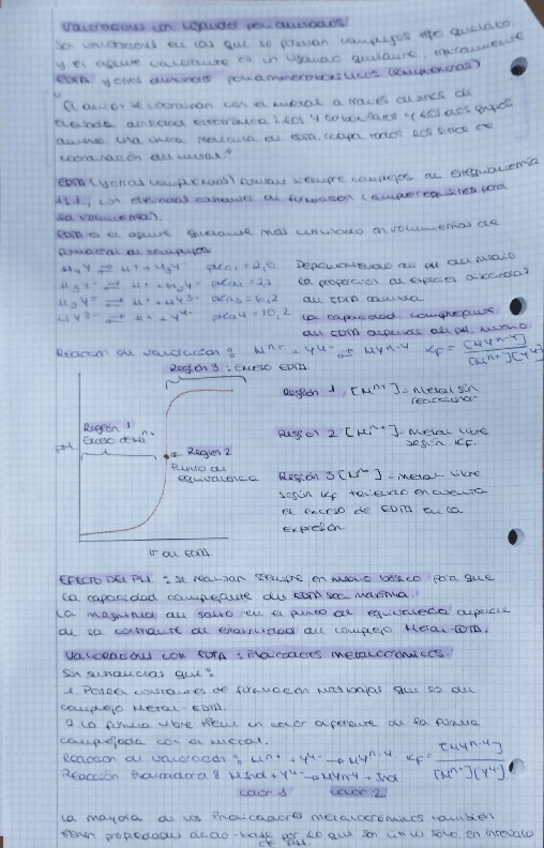 Valoraciones con ligandos polidentados
Son valoraciones en las que se forman complejos tipo quelato,
y el agente valorante es un ligando quelante, típicamente
EDTA y otros ácidos poliaminocarboxílicos (complexonas)
"El anión se coordina con el metal a través de de
elevada densidad electrónica: los 4 carboxilatos y los dos grupos
amino. Una única molécula de EDTA ocupa todos los sitios de
coordinación del metal."
EDTA (y otras complexonas) forman siempre complejos de estequiometría
1:1, con elevadas constantes de formación (requisitos para
la volumetría).
EDTA es el agente quelante más utilizado en volumetrías de
formación de complejos
H4Y ⇌ H+ + H3Y- pka1 = 2,0 Dependiendo del pH del medio
H3Y- ⇌ H+ + H2Y2- pka2 = 2,7 la proporción de especies disociadas
H2Y2- ⇌ H+ + HY3- pka3 = 6,2 del EDTA cambia.
HY3- ⇌ H+ + Y4- pka4 = 10,2 La capacidad complejante
del EDTA depende del pH medio.
Reacción de valoración: Mn+ + Y4- ⇌ MYn-4 Kf = [MYn-4] / [Mn+][Y4-]
Región 3: exceso EDTA
Región 1, [Mn+] = Metal sin
reaccionar
Región 1
Exceso de Mn+
pM
Región 2
Punto de
equivalencia
Región 2 [Mn+] = Metal libre
según Kf.
Región 3 [Mn+] = metal libre
según Kf teniendo en cuenta
el exceso de EDTA en la
expresión
V de EDTA
EFECTO DEL PH: se realizan siempre en medio básico para que
la capacidad complejante del EDTA sea máxima.
La magnitud del salto en el punto de equivalencia depende
de la constante de estabilidad del complejo Metal-EDTA.
Valoraciones con EDTA: indicadores metalocrómicos
Son sustancias que:
1. Poseen constantes de formación más bajas que la del
complejo Metal-EDTA.
2. La forma libre tiene un color diferente de la forma
complejada con el metal.
Reacción de valoración: Mn+ + Y4- → MYn-4 Kf = [MYn-4] / [Mn+][Y4-]
Reacción indicadora: MInd + Y4- → MYn-4 + Ind
color 1 color 2
La mayoría de los indicadores metalocrómicos también
tienen propiedades ácido-base por lo que son útiles solo en intervalo
de pH.